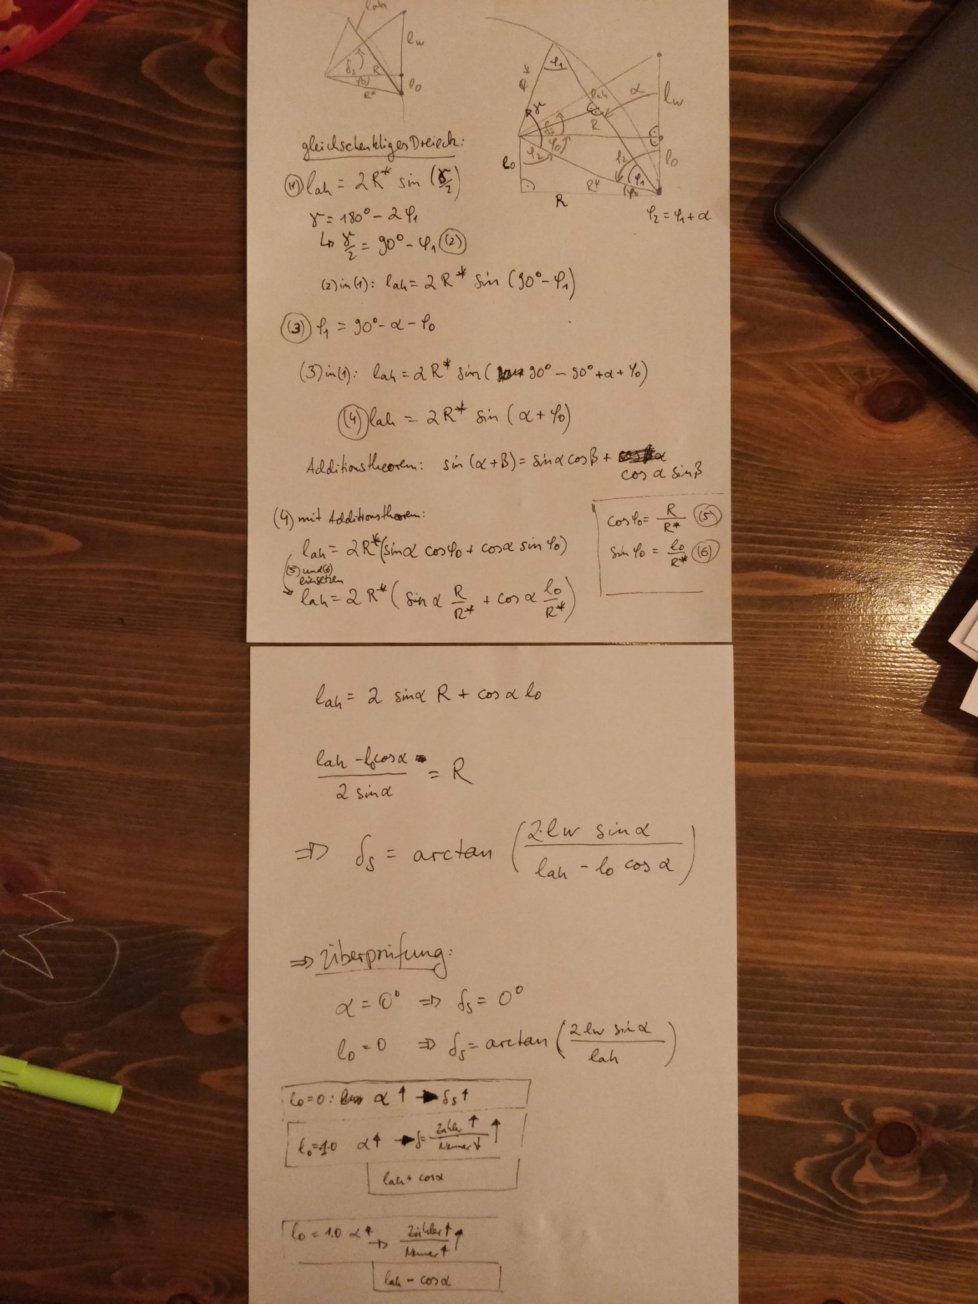 lah
lw
δs
R
φ0
R*
l0
gleichschenkliges Dreieck:
(1) lah = 2R* sin (γ/2)
γ = 180° - 2φ1
↳ γ/2 = 90° - φ1 (2)
(2) in (1): lah = 2R* sin (90° - φ1)
(3) φ1 = 90° - α - φ0
(3) in (1): lah = 2R* sin (90° - 90° + α + φ0)
(4) lah = 2R* sin (α + φ0)
Additionstheorem: sin (α+β) = sinα cosβ +
cos α sinβ
(4) mit Additionstheorem:
lah = 2R* (sinα cosφ0 + cosα sinφ0)
(5) und (6)
einsetzen
lah = 2R* (sin α R/R* + cos α l0/R*)
φ1
R*
γ
lah
α
lw
R
φ0
φ2
l0
φ2
φ1
l0
R*
φ0
R
φ2 = φ1 + α
cosφ0 = R/R* (5)
sinφ0 = l0/R* (6)
lah = 2 sinα R + cos α l0
(lah - l0 cosα)/(2 sinα) = R
⇒ δs = arctan ((2·lw sinα)/(lah - l0 cos α))
⇒ Überprüfung:
α = 0° ⇒ δs = 0°
l0 = 0 ⇒ δs = arctan ((2 lw sinα)/lah)
l0=0: α ↑ → δs ↑
l0=1.0 α↑ → δ = Zähler ↑/Nenner ↓ ↑
lah + cosα
l0 = 1.0 α↑ ⇒ Zähler ↑/Nenner ↑ ↑
lah - cosα